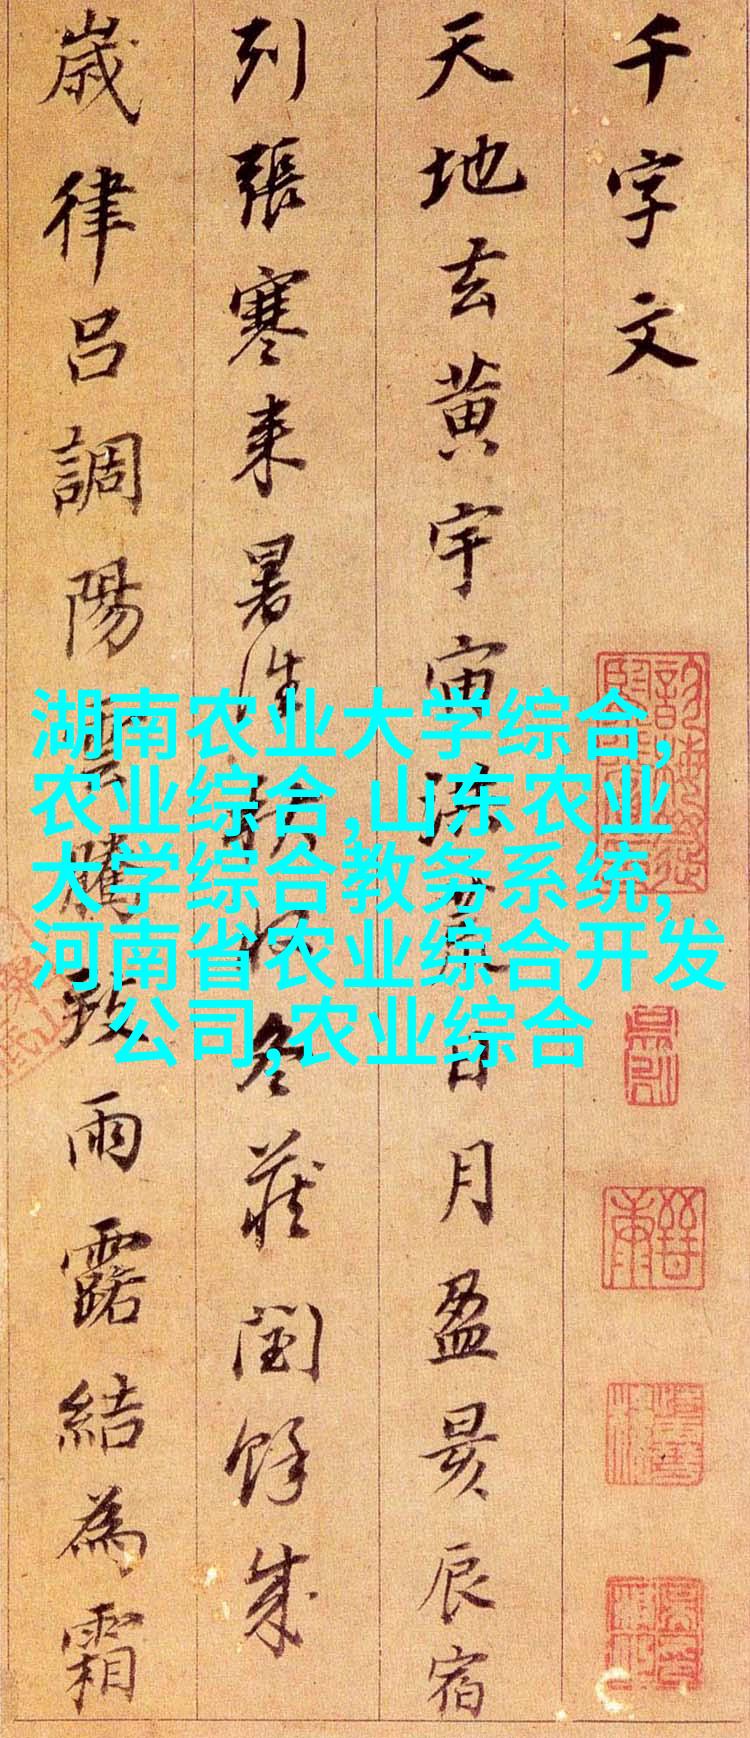 千字文
天地玄黄宇宙洪荒日月盈昃辰宿
列張寒来暑往秋收冬藏閏餘成
歲律呂調陽雲騰致雨露結為霜
湖南农业大学综合,
农业综合,山东农业
大学综合教务系统,
河南省农业综合开发
公司,农业综合